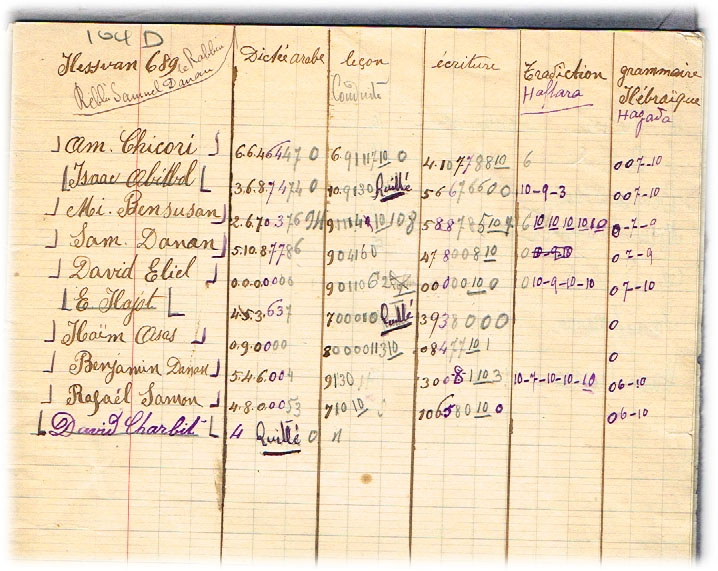 164 D
Hessvan 689 le Rabbin
Rebbi Samuel Danan
Dictée arabe leçon écriture Tradiction grammaire
Conduite Haftara Hébraïque
Hagada
Am. Chicori 6.6.4.6 4 4 7 0 6. 9 1 1 1 7 10 0 4.10 7 7 8 8 10 6 0 0 7-10
Isaac Abitbol 3.6.8.7 4 7 4 0 10.9 13 0 Quitté 5 6 6 7 6 6 0 0 10-9-3 0 0 7-10
Mi. Bensusan 2.6.7.0.3 7 6
Sam. Danan 5.10.8 7 7 8 6 9 0 4 1 6 0 4 7 8 0 0 8 10 0 7-9
David Eliel 0.0.0.0 0 0 6 0 0 0 0 0 10 0 0 10-9-10-10 0 7-10
E Hayot 4.5.3.6 3 7 7 0 0 0 10 Quitté 3 9 3 8 0 0 0 0
Haïm Asas 0.9.0.0 0 0 8 0 0 0 0 11 3 10 0 8 4 7 7 10 1 0
Benjamin Danan 5.4.6.0 0 4 9 13 0 3 0 0 8 1 10 3 10-7-10-10-10 0 6-10
Rafaél Samon 4.8.0.0 0 5 3 7 10 10 10 6 5 8 0 10 0 0 6-10
David Charbit 4 Quitté 0